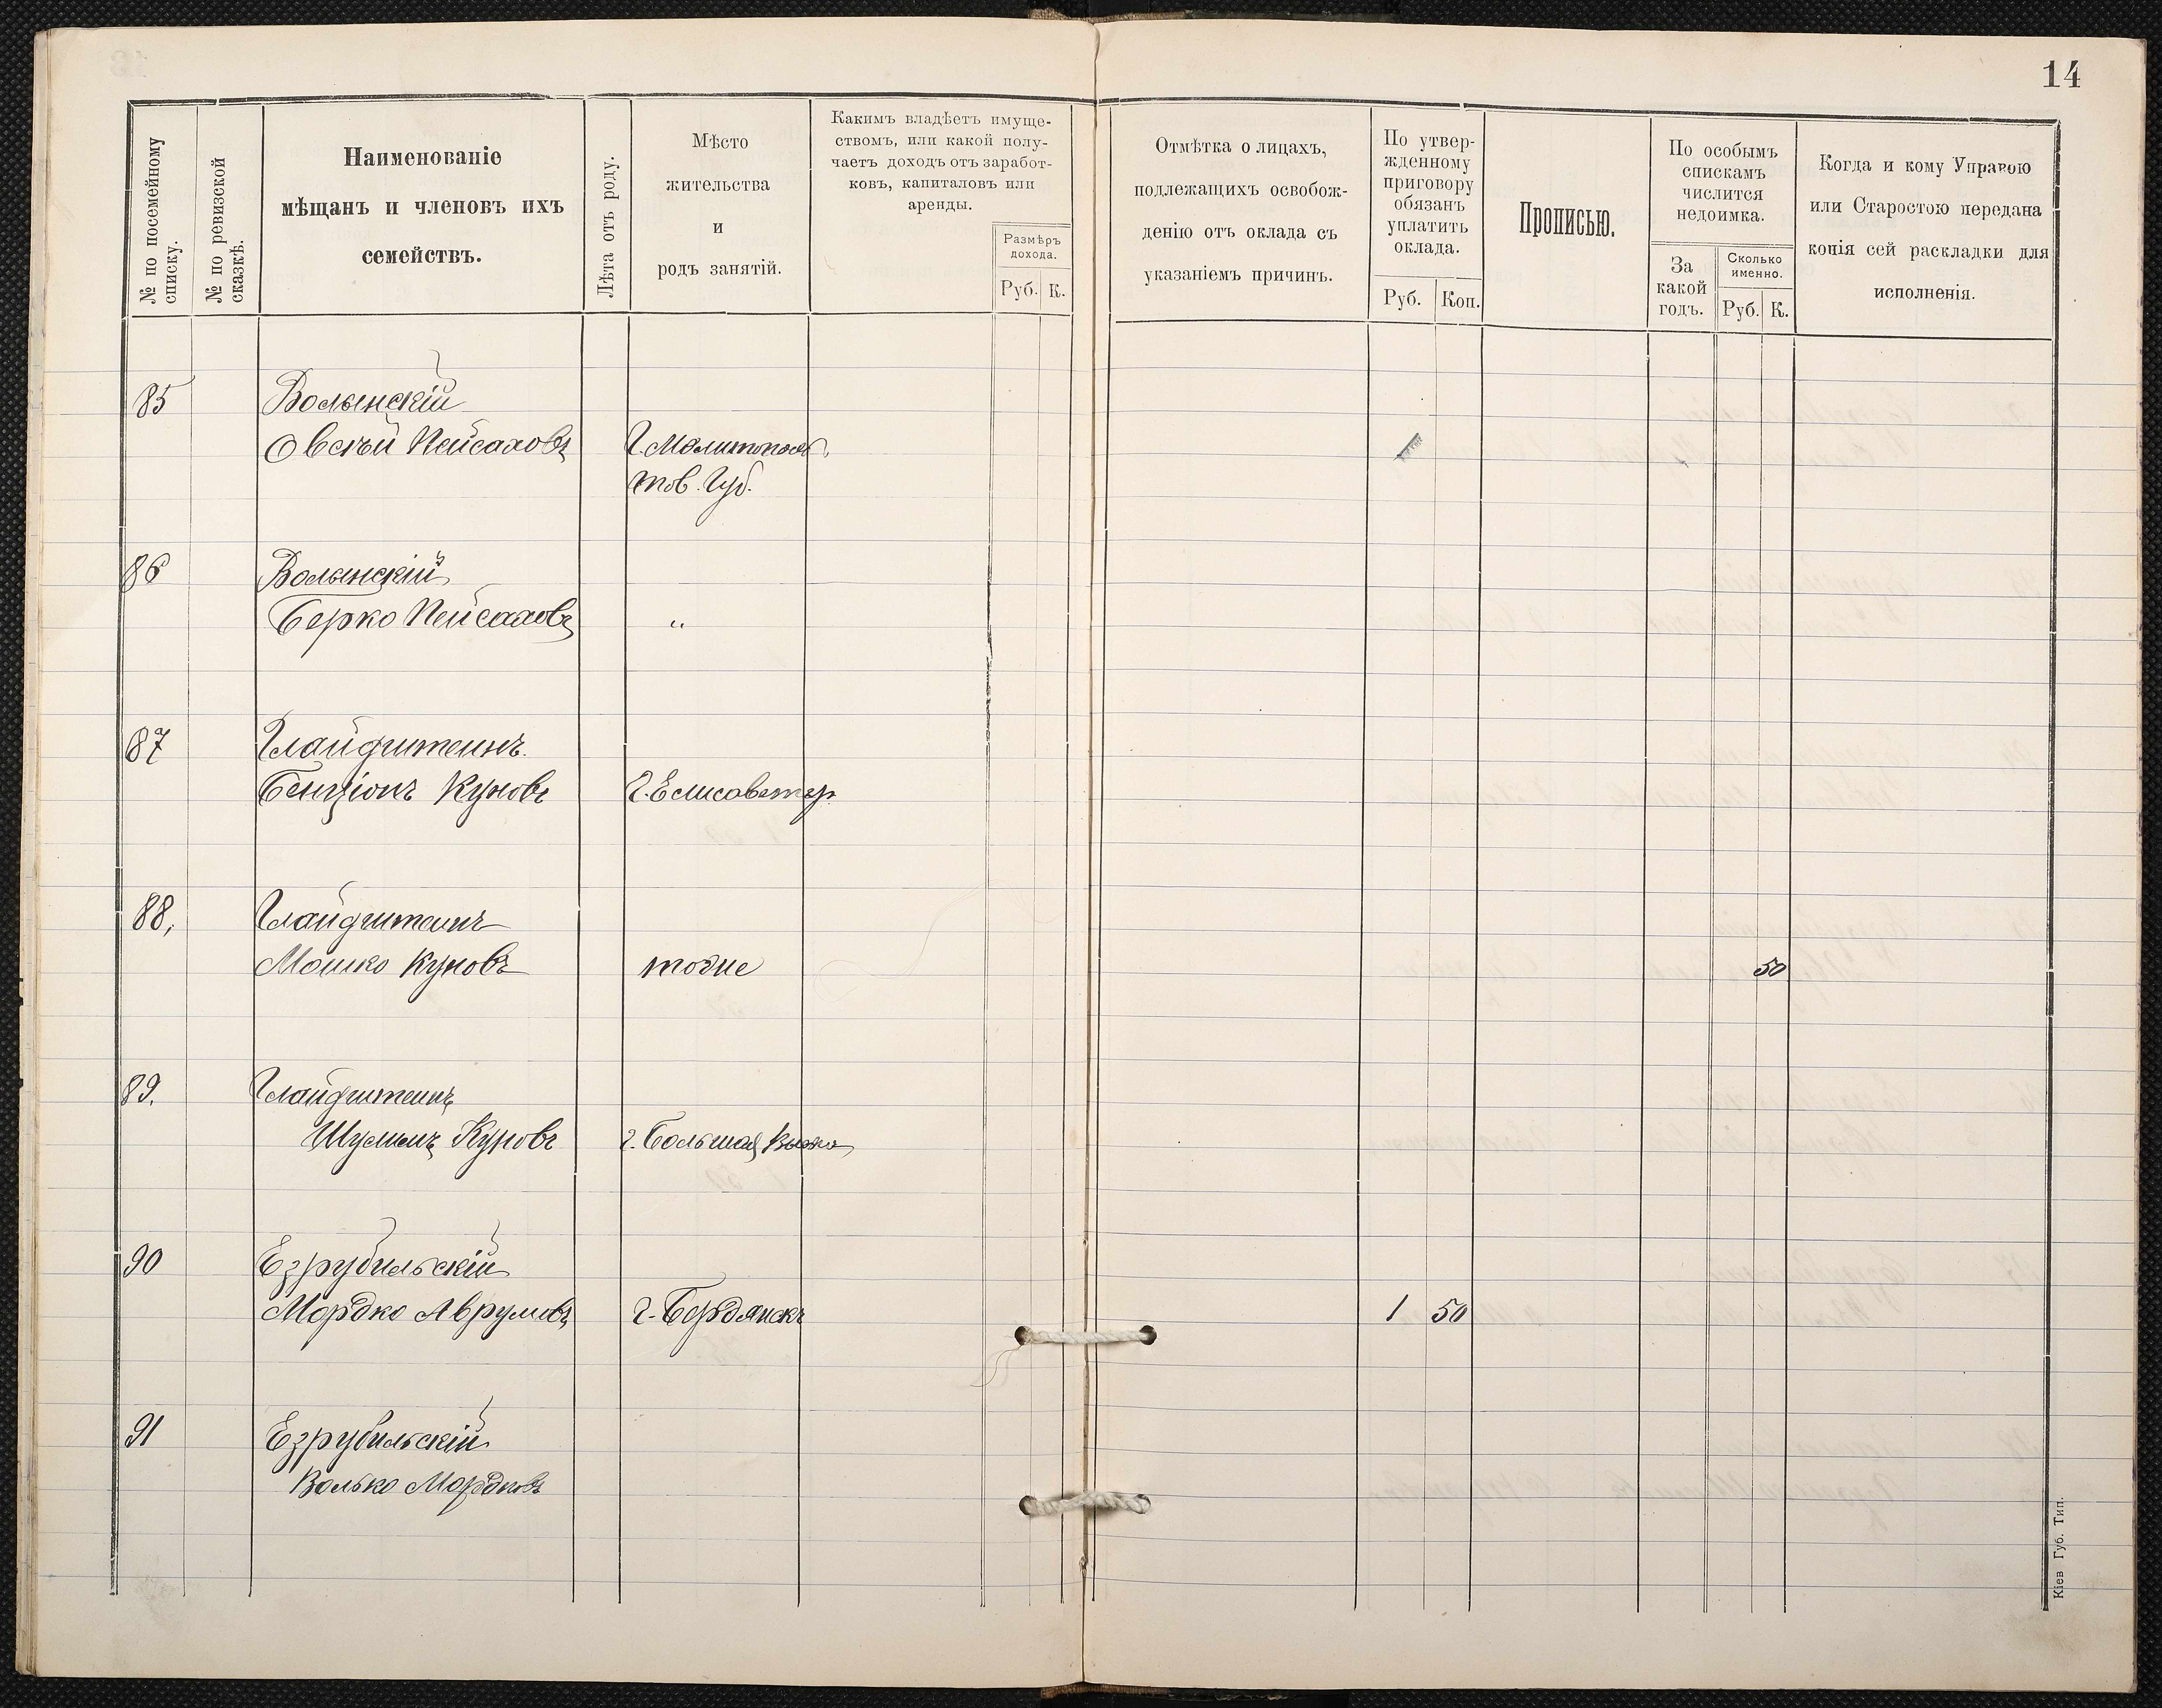 14
№ по посемейному
списку.
№ по ревизской
сказкѣ.
Наименованіе
мѣщанъ и членовъ ихъ
семействъ.
Лѣта отъ роду.
Мѣсто
жительства
и
родъ занятій.
Какимъ владѣетъ имуще-
ствомъ, или какой полу-
чаетъ доходъ отъ заработ-
ковъ, капиталовъ или
аренды.
Размѣръ
дохода.
Руб. К.
Отмѣтка о лицахъ,
подлежащихъ освобож-
денію отъ оклада съ
указаніемъ причинъ.
По утвер-
жденному
приговору
обязанъ
уплатить
оклада.
Руб. Коп.
Прописью.
По особымъ
спискамъ
числится
недоимка.
За
какой
годъ.
Сколько
именно.
Руб. К.
Когда и кому Управою
или Старостою передана
копія сей раскладки для
исполненія.
85 Волынскій
Овсѣй Пейсаховъ Г. Мелитополь
Губ.
86 Волынскій
Берко Пейсаховъ "
87 Глайдштейнъ
Бенціонъ Куновъ Г. Елисаветгр.
88, Глайдштейнъ
Мошко Куновъ тоже 50
89. Глайдштейнъ
Шулимъ Куновъ г. Большая Виска
90 Езрубильскій
Мордко Аврумовъ г. Бердянскъ 1 50
91 Езрубильскій
Волько Мордковъ
Кіев Губ. Тип.